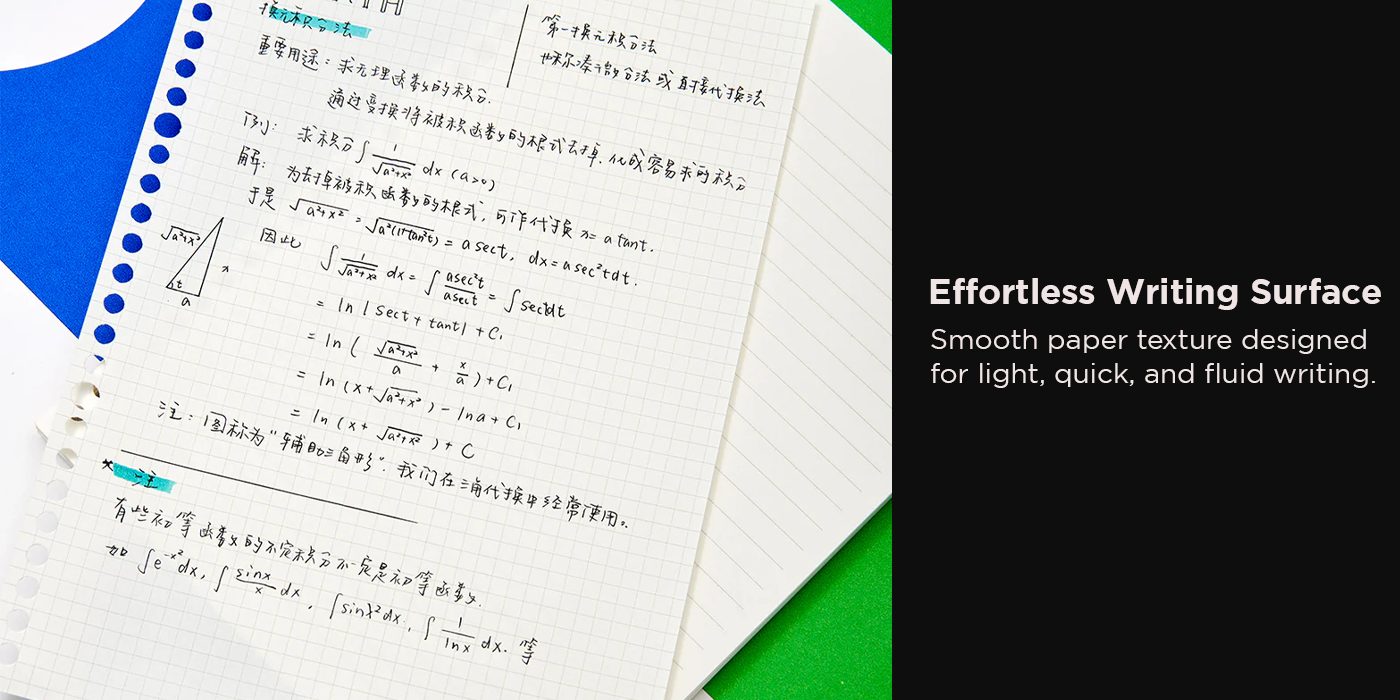 TH
换元积分法
第一换元积分法
也称凑微分法或直接代换法
重要用途:求无理函数的积分.
通过变换将被积函数的根式去掉.化成容易求的积分
例: 求积分∫ 1/√(a²+x²) dx (a>0)
解: 为去掉被积函数的根式,可作代换 x= a tant.
于是 √(a²+x²) = √(a²(1+tan²t)) = a sect, dx= a sec²tdt.
因此 ∫ 1/√(a²+x²) dx = ∫ asec²t/asect = ∫ sectdt
= ln | sect + tant | + C₁
= ln ( √(a²+x²)/a + x/a ) + C₁
= ln (x+√(a²+x²)) - lna + C₁
= ln (x+ √(a²+x²)) + C
√(a²+x²)
x
t
a
注:图称为“辅助三角形”.我们在三角代换中经常使用。
* 注
有些初等函数的不定积分不一定是初等函数.
如 ∫e^(-x²)dx, ∫ sinx/x dx, ∫sinx²dx, ∫ 1/lnx dx. 等
Effortless Writing Surface
Smooth paper texture designed
for light, quick, and fluid writing.